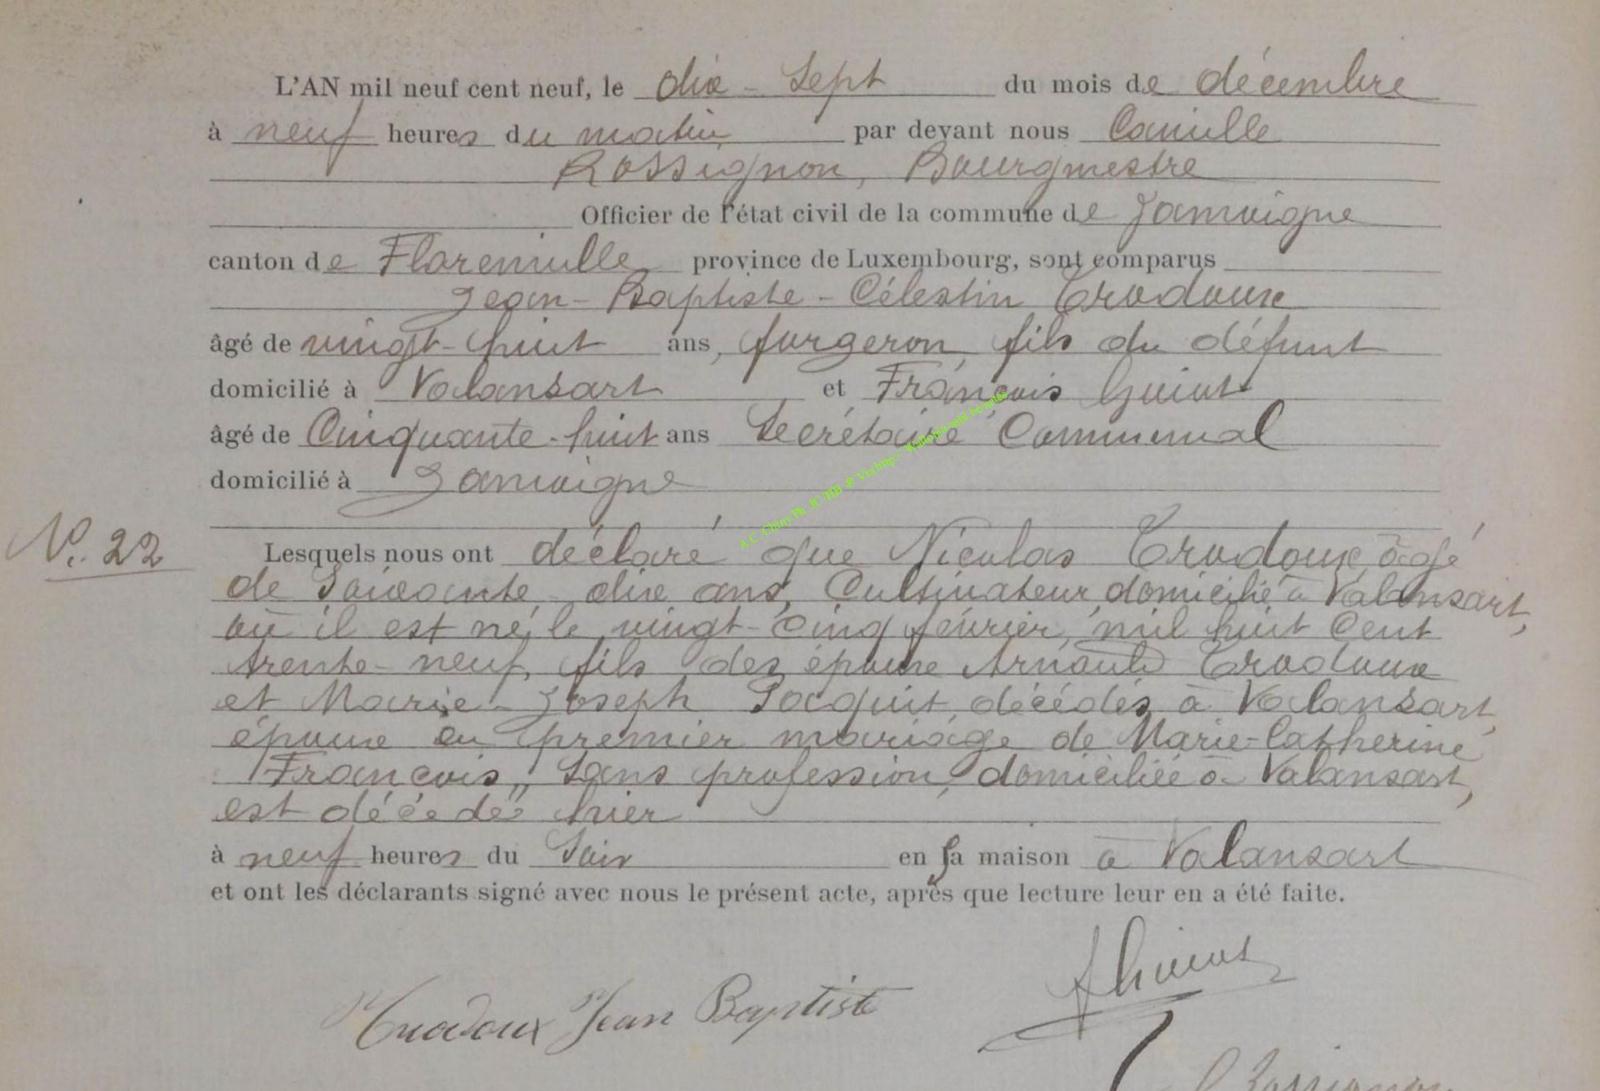 L'AN mil neuf cent neuf, le dix-sept du mois de décembre
à neuf heures du matin par devant nous Camille
Rossignon, Bourgmestre
Officier de l'état civil de la commune de Jamoigne
canton de Florenville province de Luxembourg, sont comparus
Jean-Baptiste-Célestin Trodoux
âgé de vingt-huit ans, forgeron, fils du défunt
domicilié à Valansart et François
âgé de Cinquante-huit ans Secrétaire Communal
domicilié à Jamoigne
N°. 22
Lesquels nous ont déclaré que Nicolas Trodoux, âgé
de Soixante-dix ans, Cultivateur, domicilié à Valansart,
où il est né, le vingt-cinq février, mil huit Cent
trente-neuf, fils des époux Arnould Trodoux
et Marie-Joseph Jocquit, décédés à Valansart,
époux en premier mariage de Marie-Catherine
François, sans profession, domiciliée à Valansart,
est décédé hier
à neuf heures du soir en sa maison à Valansart
et ont les déclarants signé avec nous le présent acte, après que lecture leur en a été faite.
Trodoux Jean Baptiste
C Rossignon